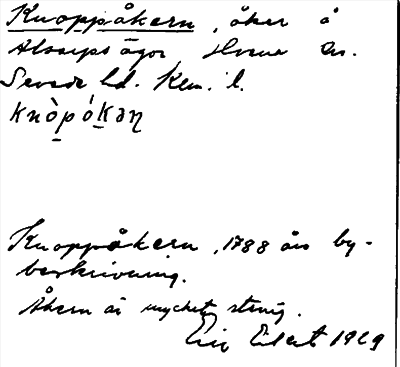 Knoppåkern, åker å
Alssarps ägor sn.
Sevede hd. Kalm. l.
knòpókəɳ
Knoppåkern, 1788 års by-
beskrivning.
Åkern är mycket stenig.
Eric Elert 1929